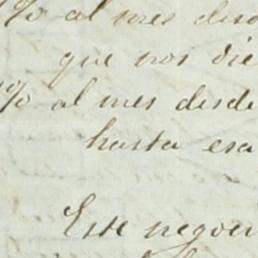 % al mes desd
que nos die
% al mes desde
hasta esa
Este negoci